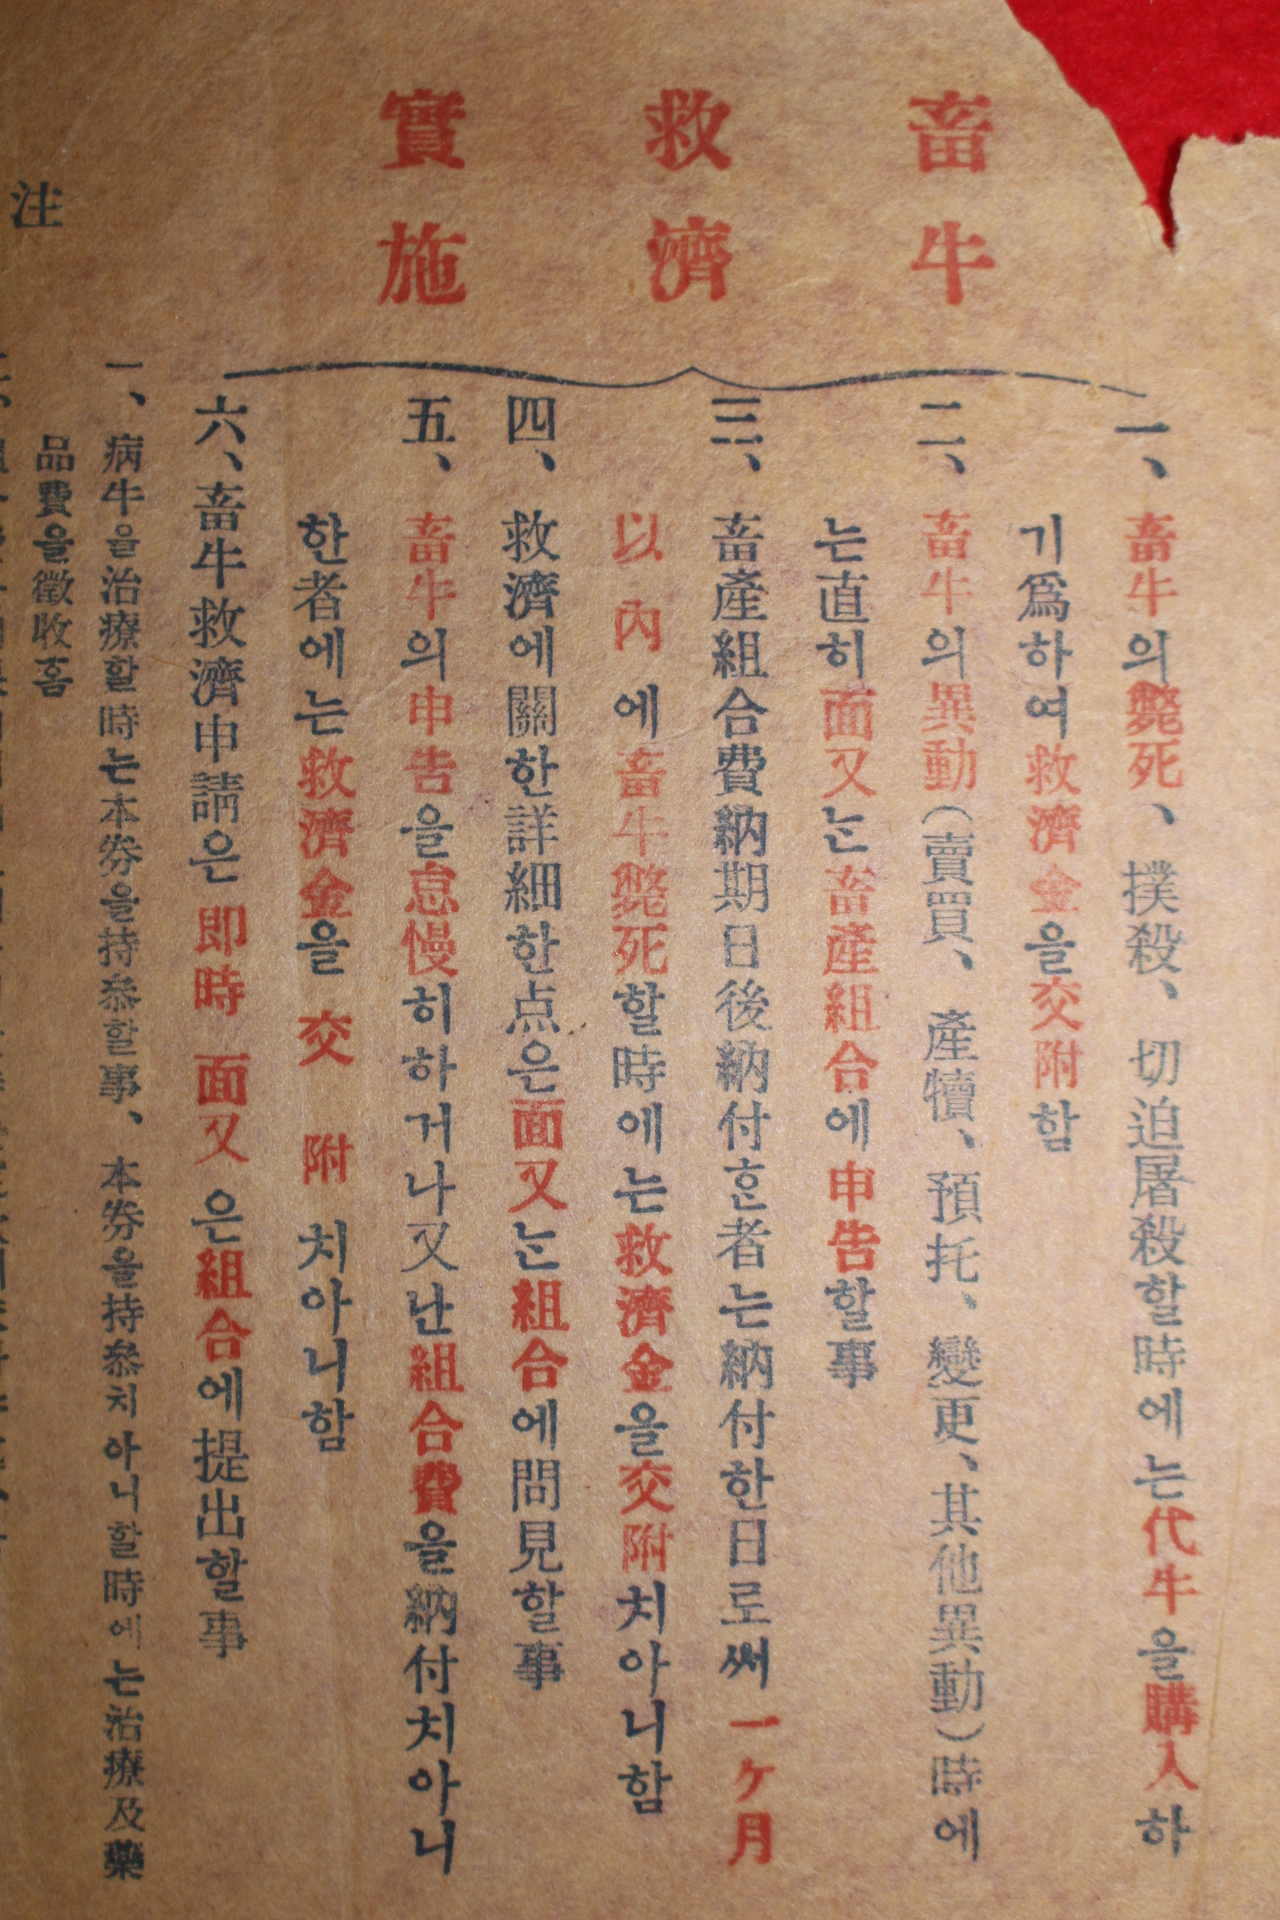 畜牛
救濟
實施
一、畜牛의斃死、撲殺、切迫屠殺할時에는代牛을購入하
기爲하여救濟金을交附함
二、畜牛의異動(賣買、產犢、預托、變更、其他異動)時에
는直히面又는畜產組合에申告할事
三、畜產組合費納期日後納付한者는納付한日로써一ケ月
以內에畜牛斃死할時에는救濟金을交附치아니함
四、救濟에關한詳細한点은面又는組合에問見할事
五、畜牛의申告을怠慢히하거나又난組合費을納付치아니
한者에는救濟金을交附치아니함
六、畜牛救濟申請은即時面又은組合에提出할事
注
一、病牛을治療할時는本券을持叅할事、本券을持叅치아니할時에는治療及藥
品費을徵收홈